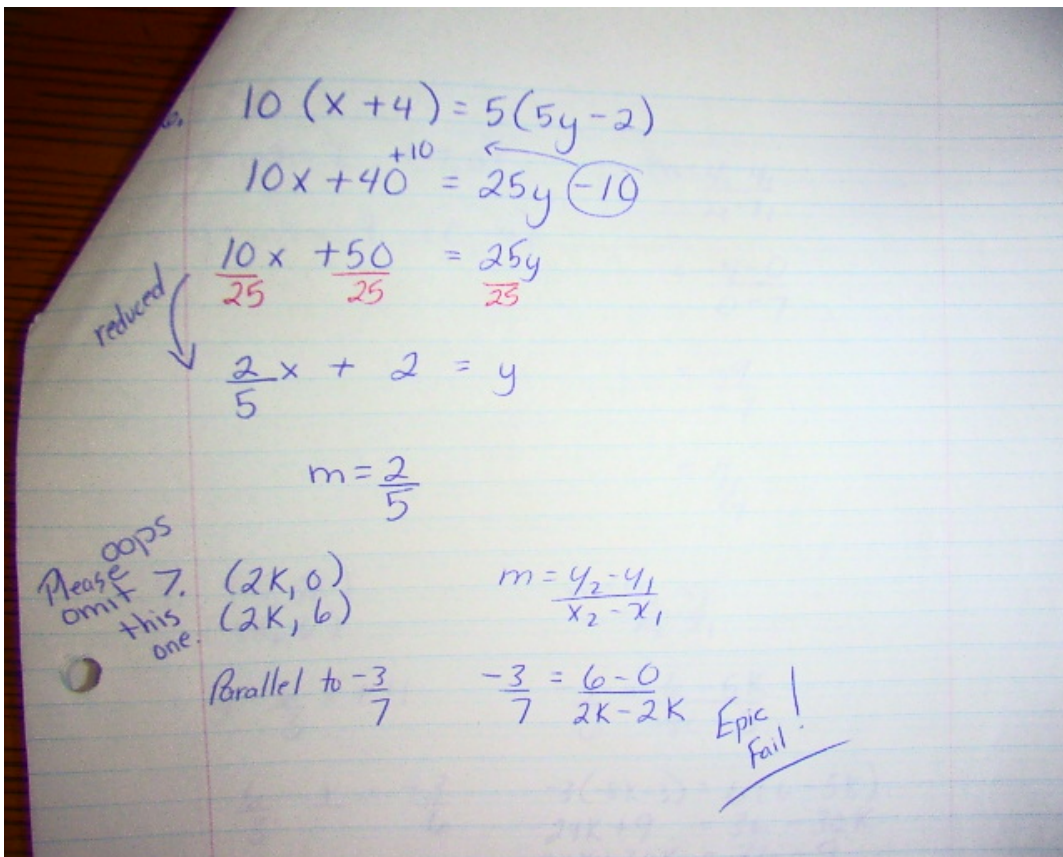 6. 10 (x + 4) = 5(5y - 2)
10x + 40 +10 = 25y - 10
10/25 x + 50/25 = 25y/25
reduced
2/5 x + 2 = y
m = 2/5
oops
Please
omit
this
one.
7. (2K, 0)
(2K, 6)
m = y₂ - y₁ / x₂ - x₁
Parallel to -3/7
-3/7 = 6 - 0 / 2K - 2K
Epic
Fail!